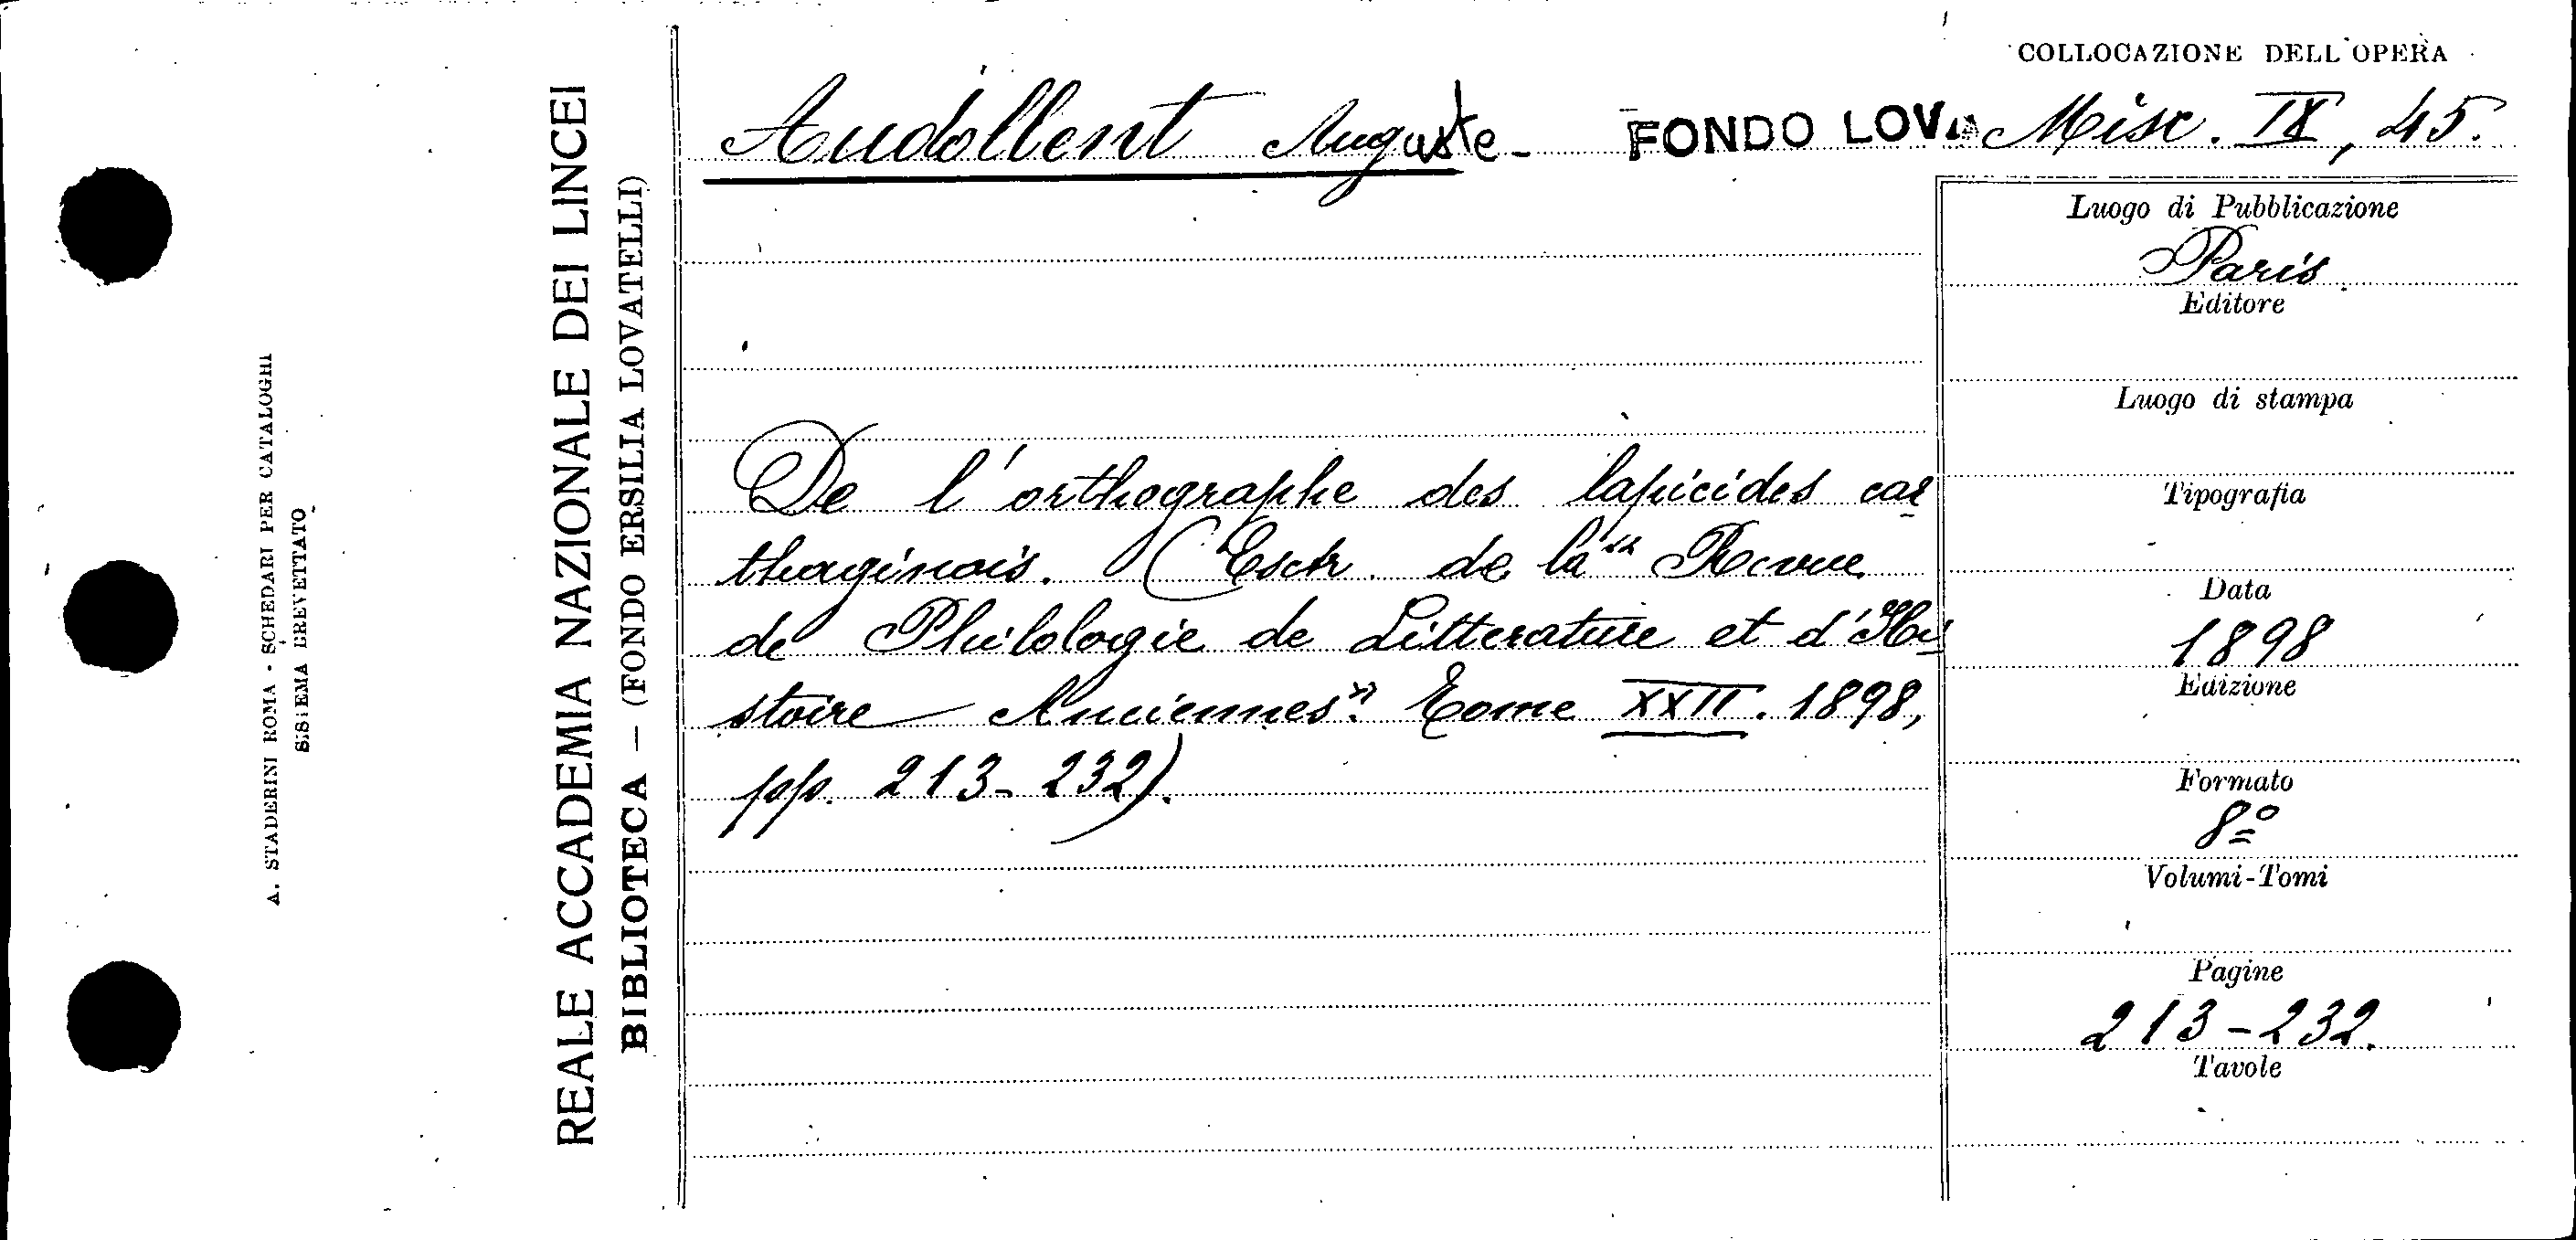 COLLOCAZIONE DELL'OPERA
Audollent Auguste - FONDO LOV. Misc. IX, 45.
De l'orthographe des lapicides car
thaginois. (Esctr. de la "Revue
de Philologie de Litterature et d'Hi
stoire Anciennes". Tome XXII. 1898,
pp. 213-232).
Luogo di Pubblicazione
Paris
Editore
Luogo di stampa
Tipografia
Data
1898
Edizione
Formato
8º
Volumi-Tomi
Pagine
213-232.
Tavole
REALE ACCADEMIA NAZIONALE DEI LINCEI
BIBLIOTECA — (FONDO ERSILIA LOVATELLI)
A. STADERINI ROMA - SCHEDARI PER CATALOGHI
SISTEMA BREVETTATO